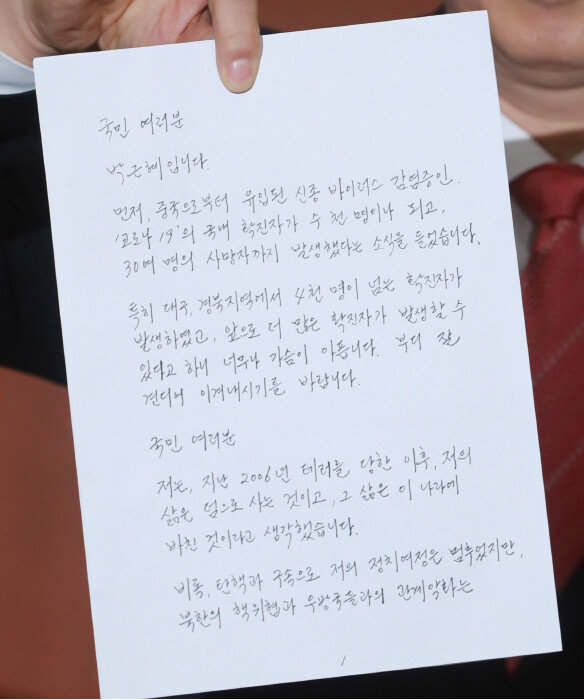 국민 여러분
박근혜입니다.
먼저, 중국으로부터 유입된 신종 바이러스 감염증인.
'코로나 19'의 국내 확진자가 수 천 명이나 되고,
30여 명의 사망자까지 발생했다는 소식을 들었습니다.
특히 대구, 경북지역에서 4천 명이 넘는 확진자가
발생하였고, 앞으로 더 많은 확진자가 발생할 수
있다고 하니 너무나 가슴이 아픕니다. 부디 잘
견디어 이겨내시기를 바랍니다.
국민 여러분
저는, 지난 2006년 테러를 당한 이후, 저의
삶은 덤으로 사는 것이고, 그 삶은 이 나라에
바친 것이라고 생각했습니다.
비록, 탄핵과 구속으로 저의 정치여정은 멈추었지만,
북한의 핵위협과 우방국들과의 관계악화는
1